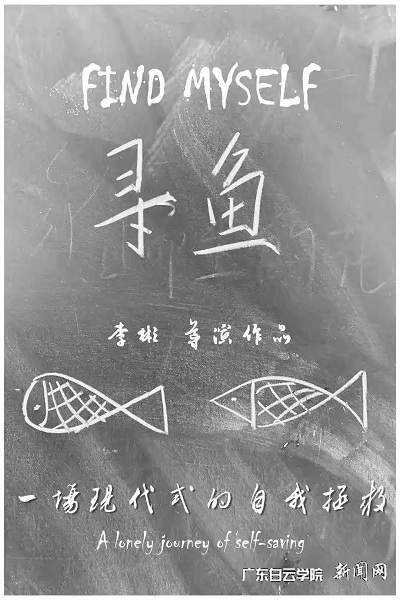 FIND MYSELF
寻鱼
李彬 导演作品
一場现代式的自我拯救
A lonely journey of self-saving
广东白云学院 新闻网